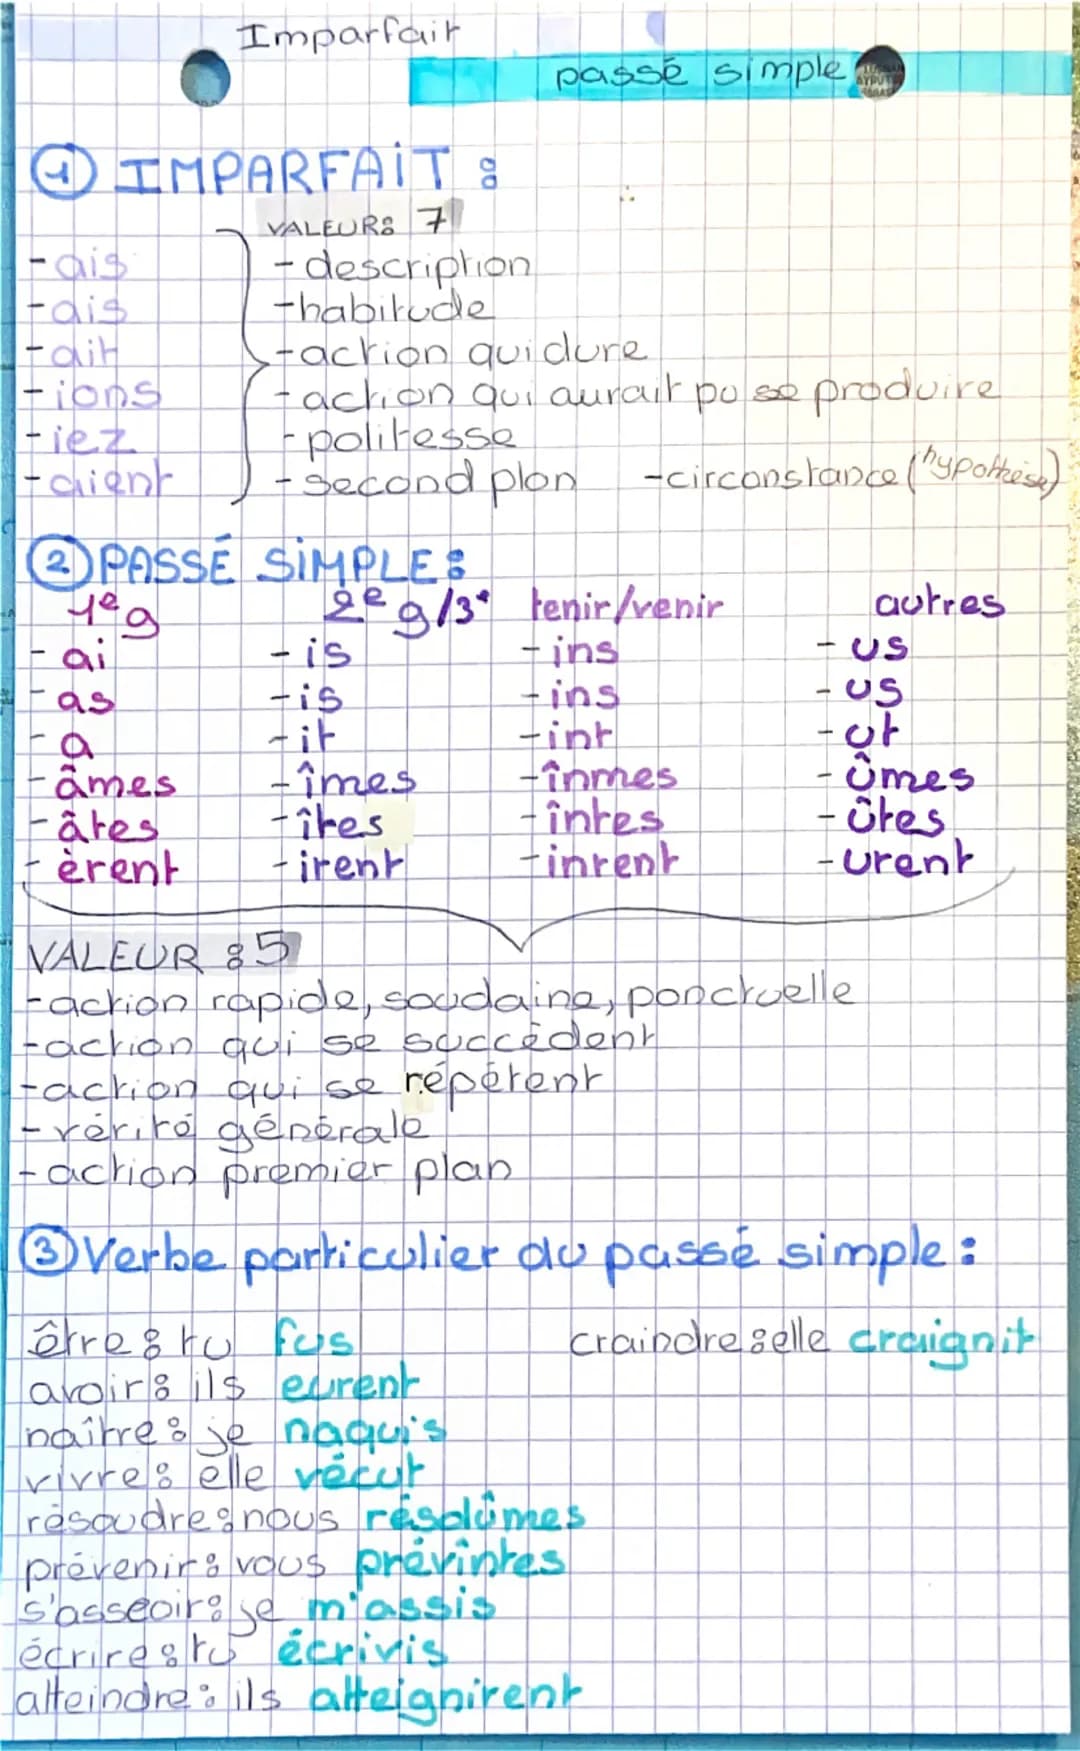 Imparfait
passé simple
① IMPARFAIT :
VALEURS 7
-ais -description
-ais -habitude
-ait -action qui dure
-ions -action qui aurait pu se produire
-iez -politesse
-aient -second plan -circonstance (hypothèse)
② PASSÉ SIMPLE :
1e g 2e g/3e tenir/venir autres
-ai -is -ins -us
-as -is -ins -us
-a -it -int -ut
-âmes -îmes -înmes -ûmes
-âtes -îtes -întes -ûtes
-èrent -irent -inrent -urent
VALEUR : 5
-action rapide, soudaine, ponctuelle
-action qui se succèdent
-action qui se répètent
-vérité générale
-action premier plan
③ Verbe particulier au passé simple :
être : tu fus craindre : elle craignit
avoir : ils eurent
naître : je naquis
vivre : elle vécut
résoudre : nous résolûmes
prévenir : vous prévintes
s'asseoir : je m'assis
écrire : tu écrivis
atteindre : ils atteignirent